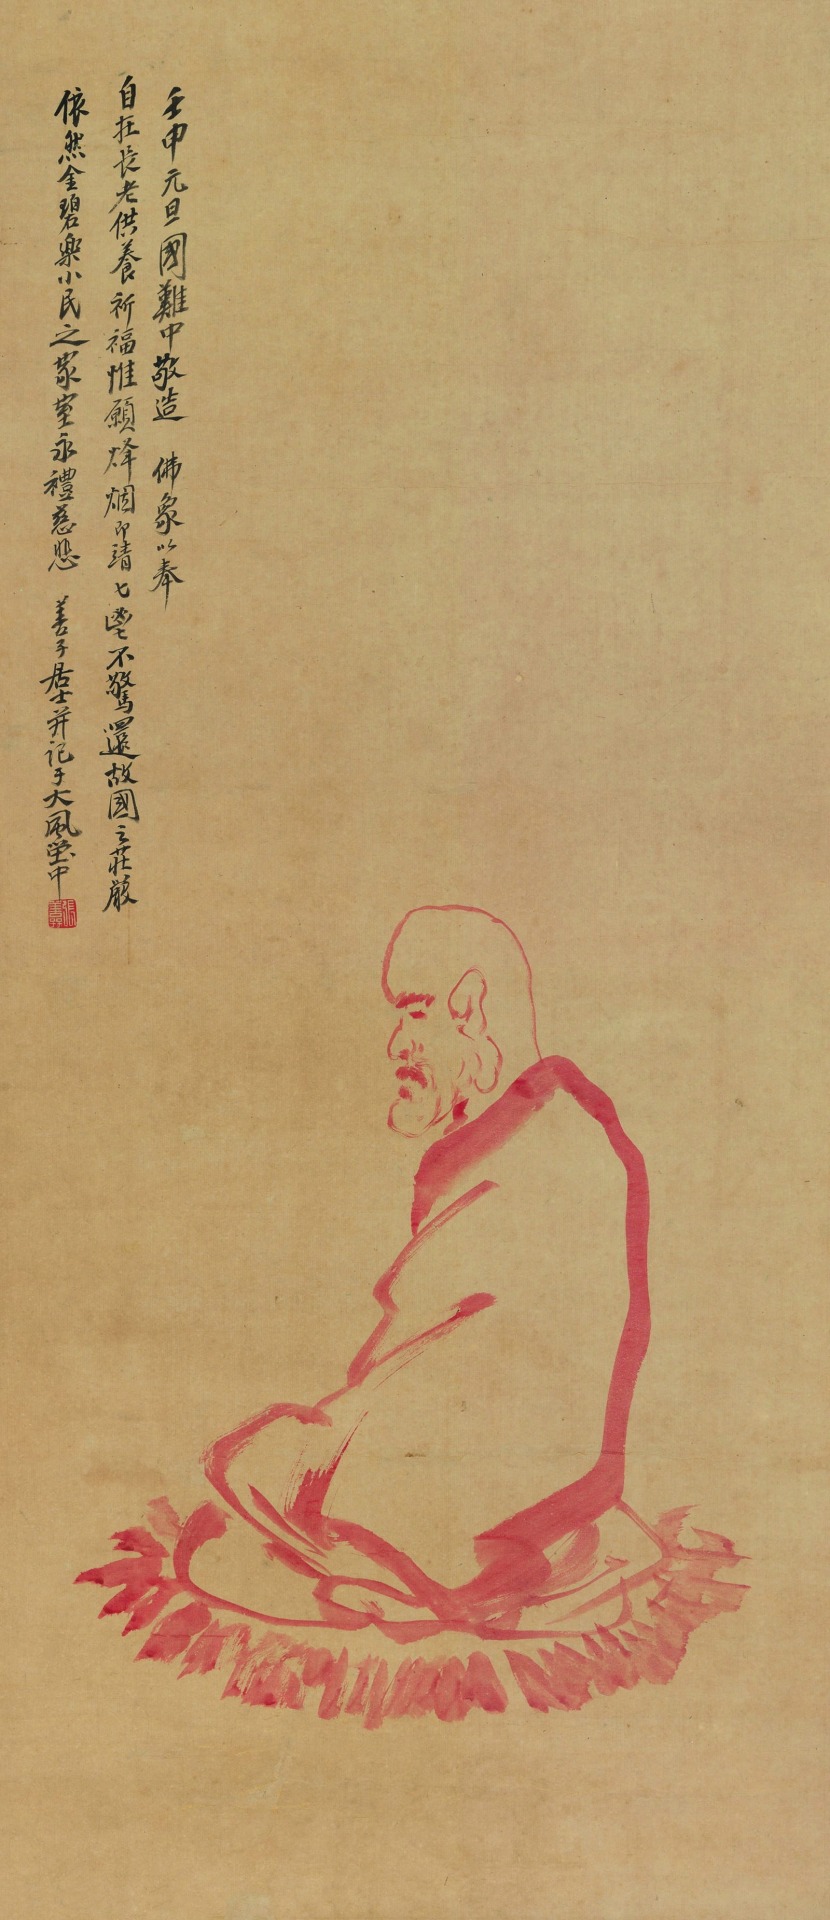 壬申元旦國難中敬造 佛象以奉
自在長老供養祈福惟願烽烟即靖七鬯不驚還故國之莊嚴
依然金碧樂小民之家室永禮慈悲 善子居士并記于大風堂中
張善